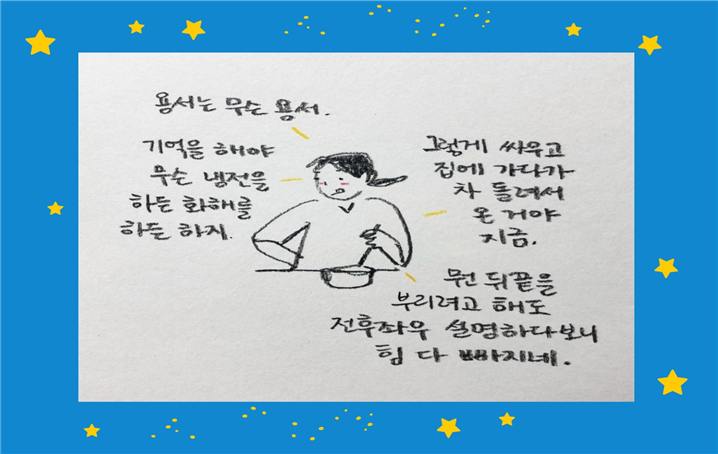 용서는 무슨 용서.
기억을 해야
무슨 냉전을
하든 화해를
하든 하지.
그렇게 싸우고
집에 가다가
차 돌려서
온 거야
지금.
뭔 뒤끝을
부리려고 해도
전후좌우 설명하다보니
힘 다 빠지네.